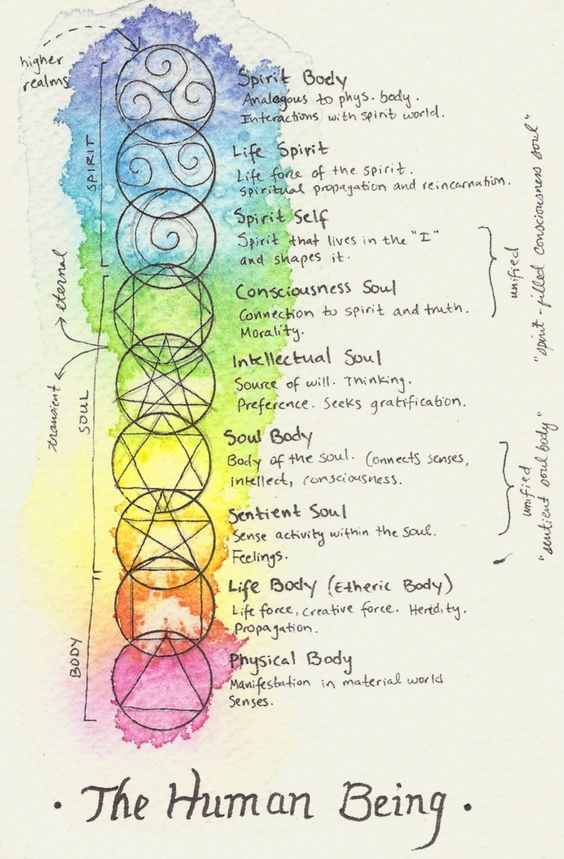 higher
realms
Spirit Body
Analogous to phys. body.
Interactions with spirit world.
SPIRIT
Life Spirit
Life force of the spirit.
Spiritual propagation and reincarnation.
Spirit Self
Spirit that lives in the "I"
and shapes it.
Consciousness Soul
Connection to spirit and truth.
Morality.
unified
"spirit-filled consciousness soul"
eternal
transient
SOUL
Intellectual Soul
Source of will. Thinking.
Preference. Seeks gratification.
Soul Body
Body of the soul. Connects senses,
intellect, consciousness.
Sentient Soul
Sense activity within the soul.
Feelings.
unified
"sentient soul body"
Life Body (Etheric Body)
Life force, creative force. Heredity.
Propagation.
BODY
Physical Body
Manifestation in material world
Senses.
· The Human Being ·